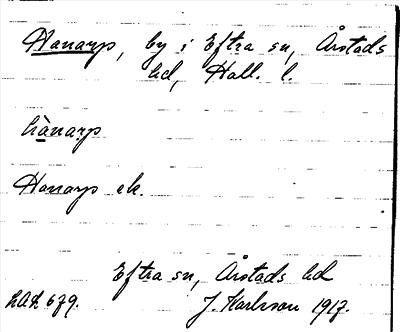 Hanarp, by i Eftra sn, Årstads
hd, Hall. l.
hànarp
Hanarp ek.
Eftra sn, Årstads hd
J. Karlsson 1917.